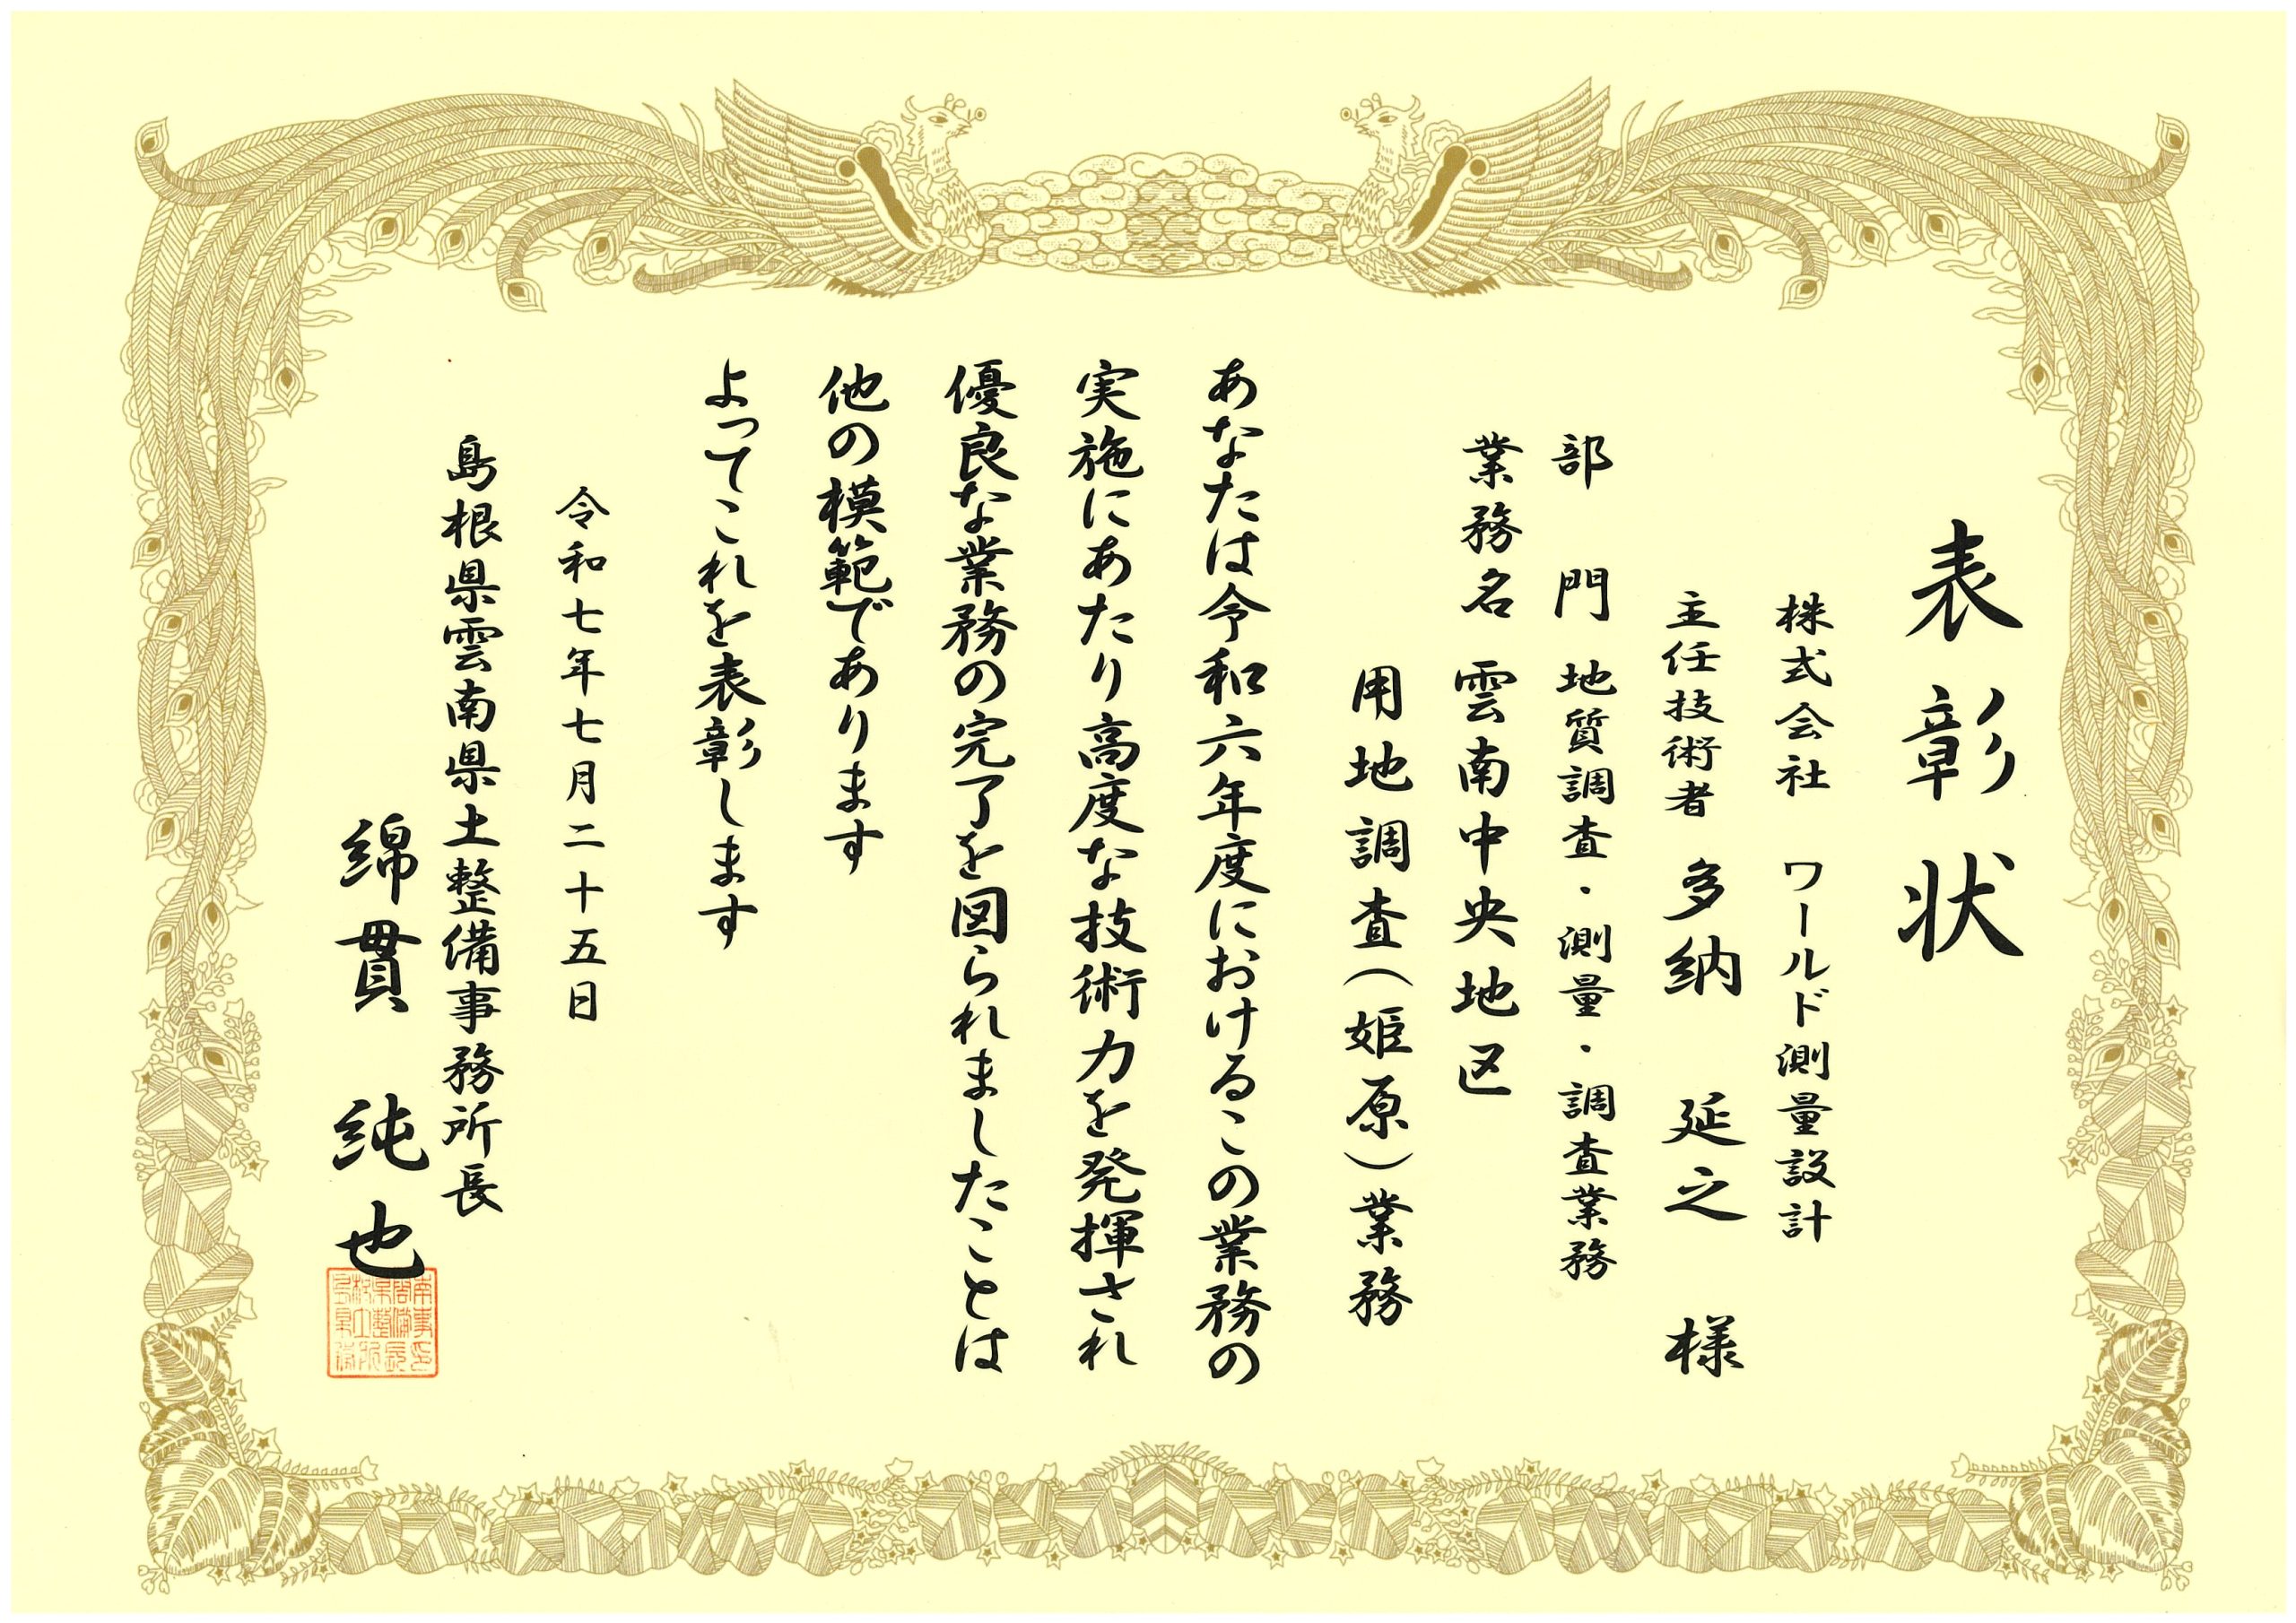 表彰状
株式会社 ワールド測量設計
主任技術者 多納 延之 様
部 門 地質調査・測量・調査業務
業務名 雲南中央地区
用地調査(姫原)業務
あなたは令和六年度におけるこの業務の
実施にあたり高度な技術力を発揮され
優良な業務の完了を図られましたことは
他の模範であります
よってこれを表彰します
令和七年七月二十五日
島根県雲南県土整備事務所長
綿貫 純也